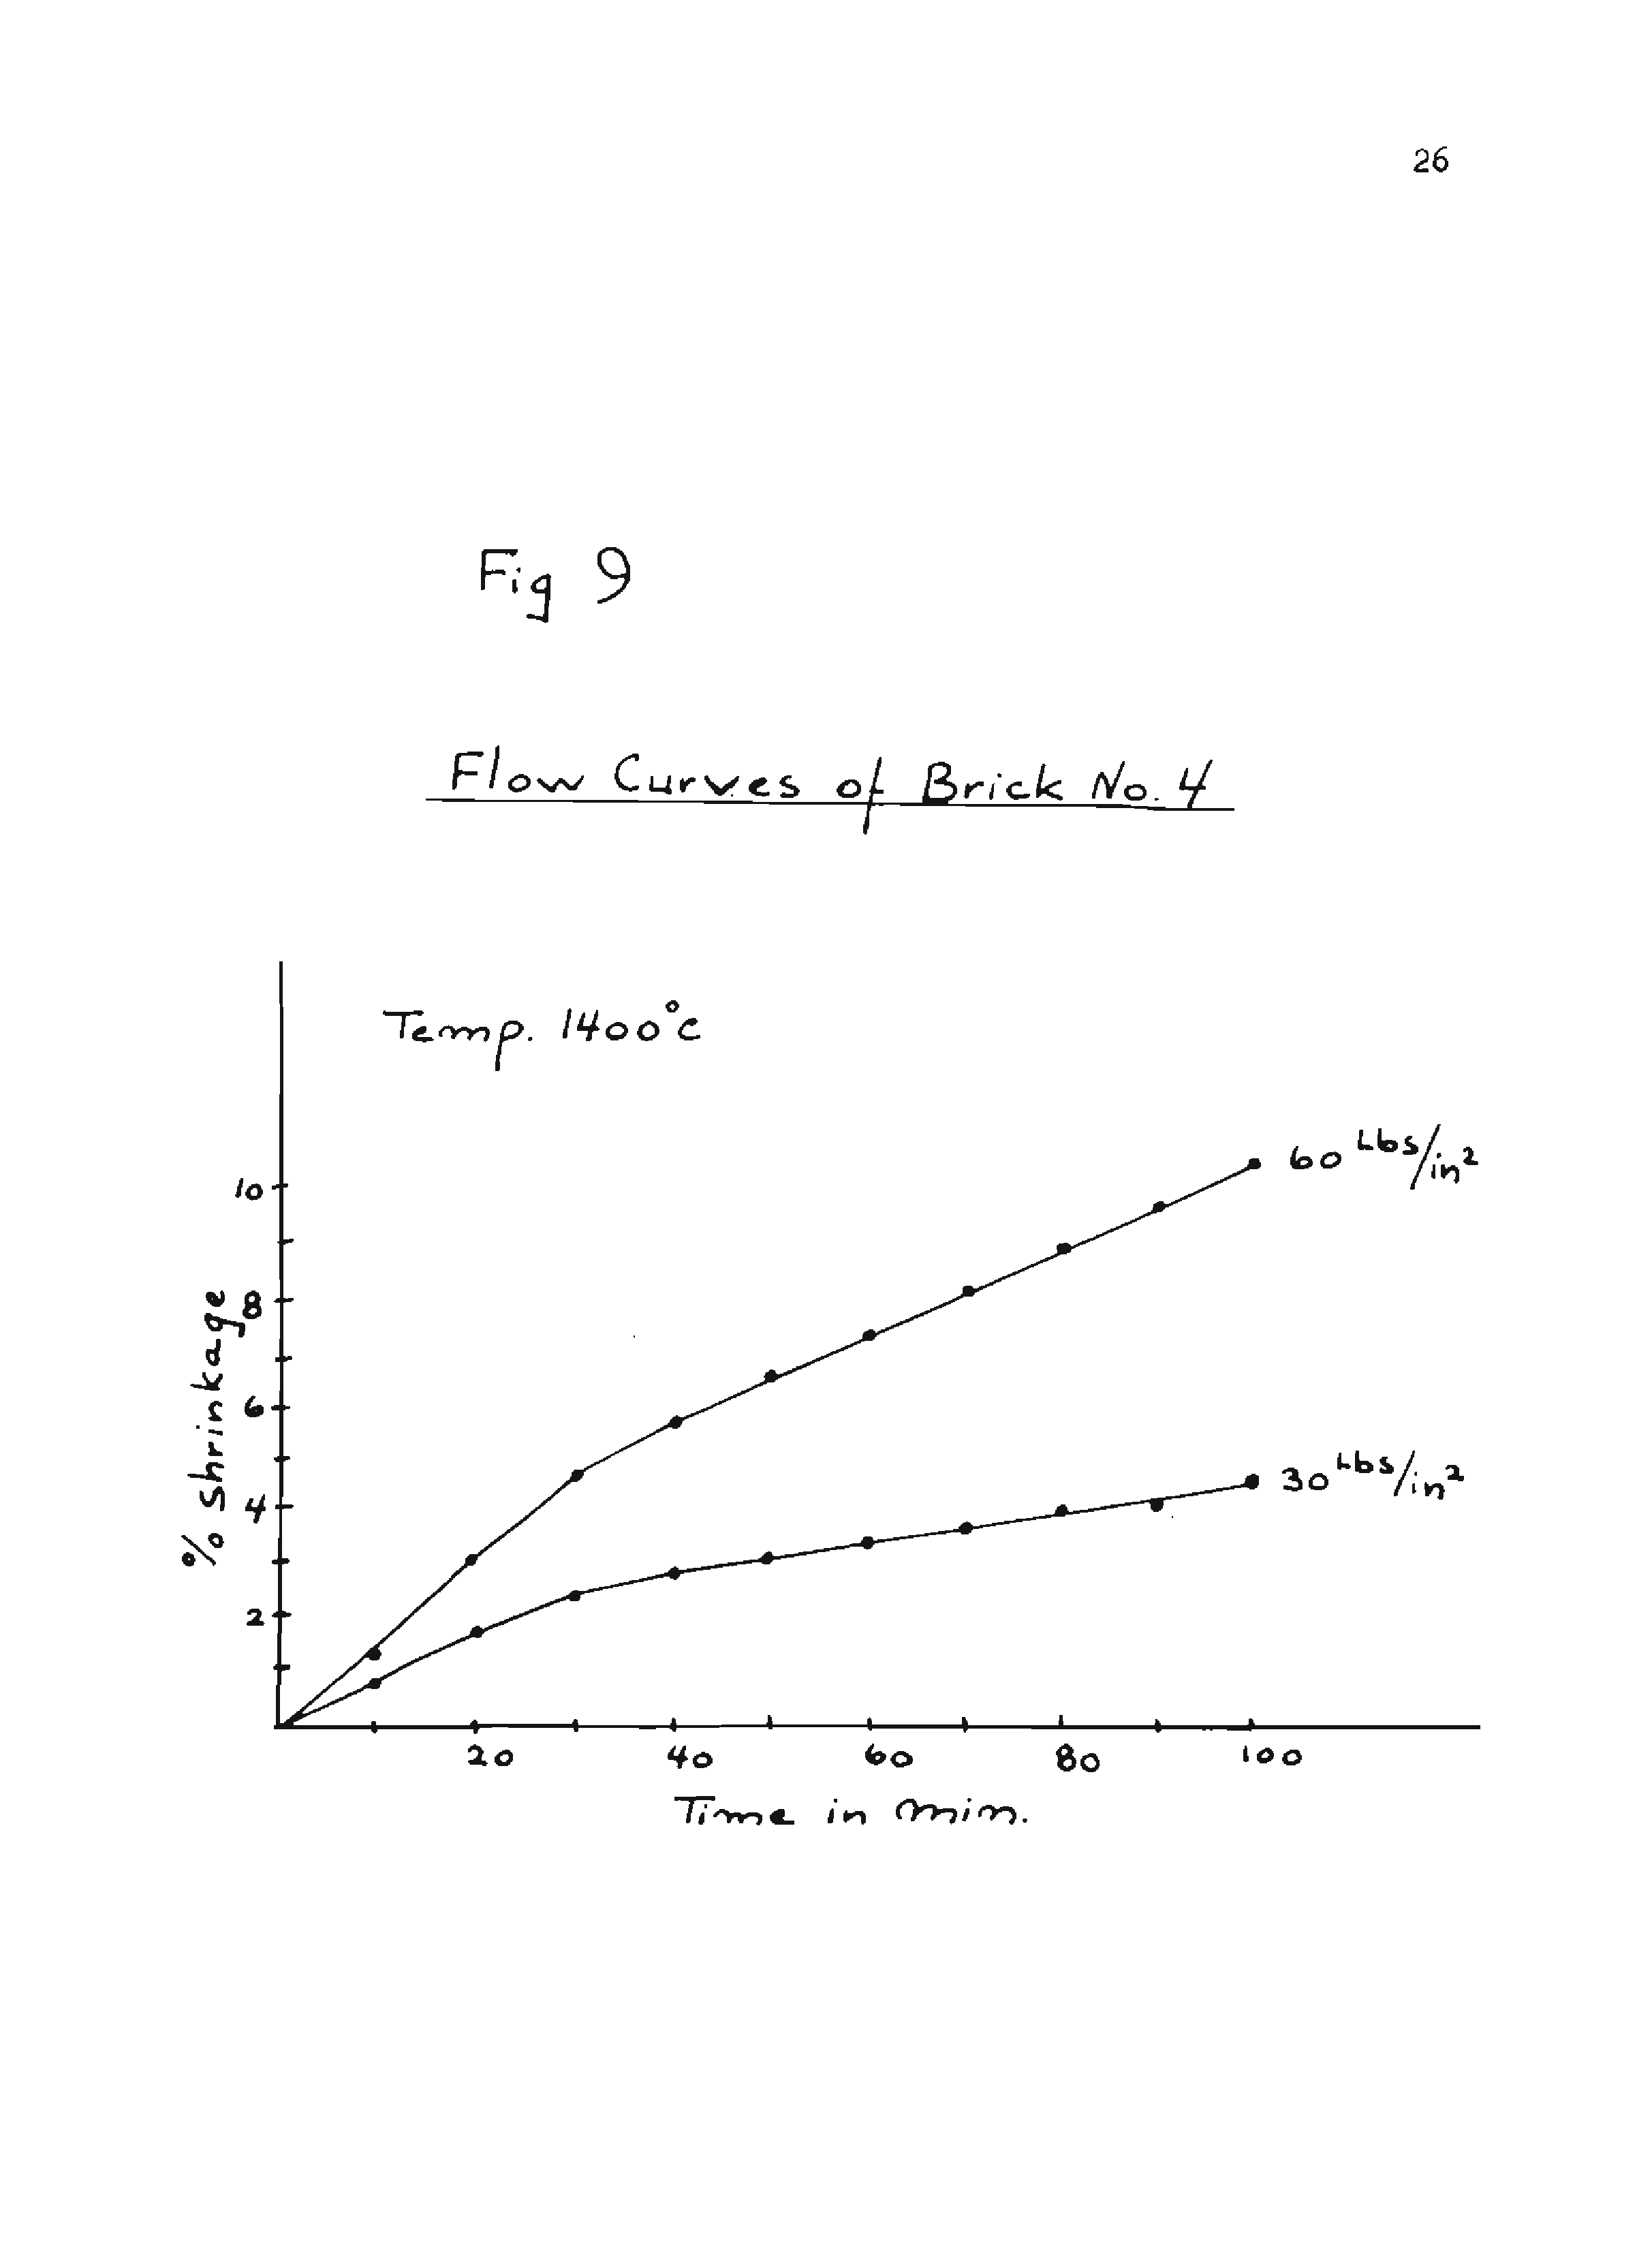 26
Fig 9
Flow Curves of Brick No. 4
Temp. 1400°c
60 Lbs/in²
10
8
6
30 Lbs/in²
4
2
% shrinkage
20 40 60 80 100
Time in min.